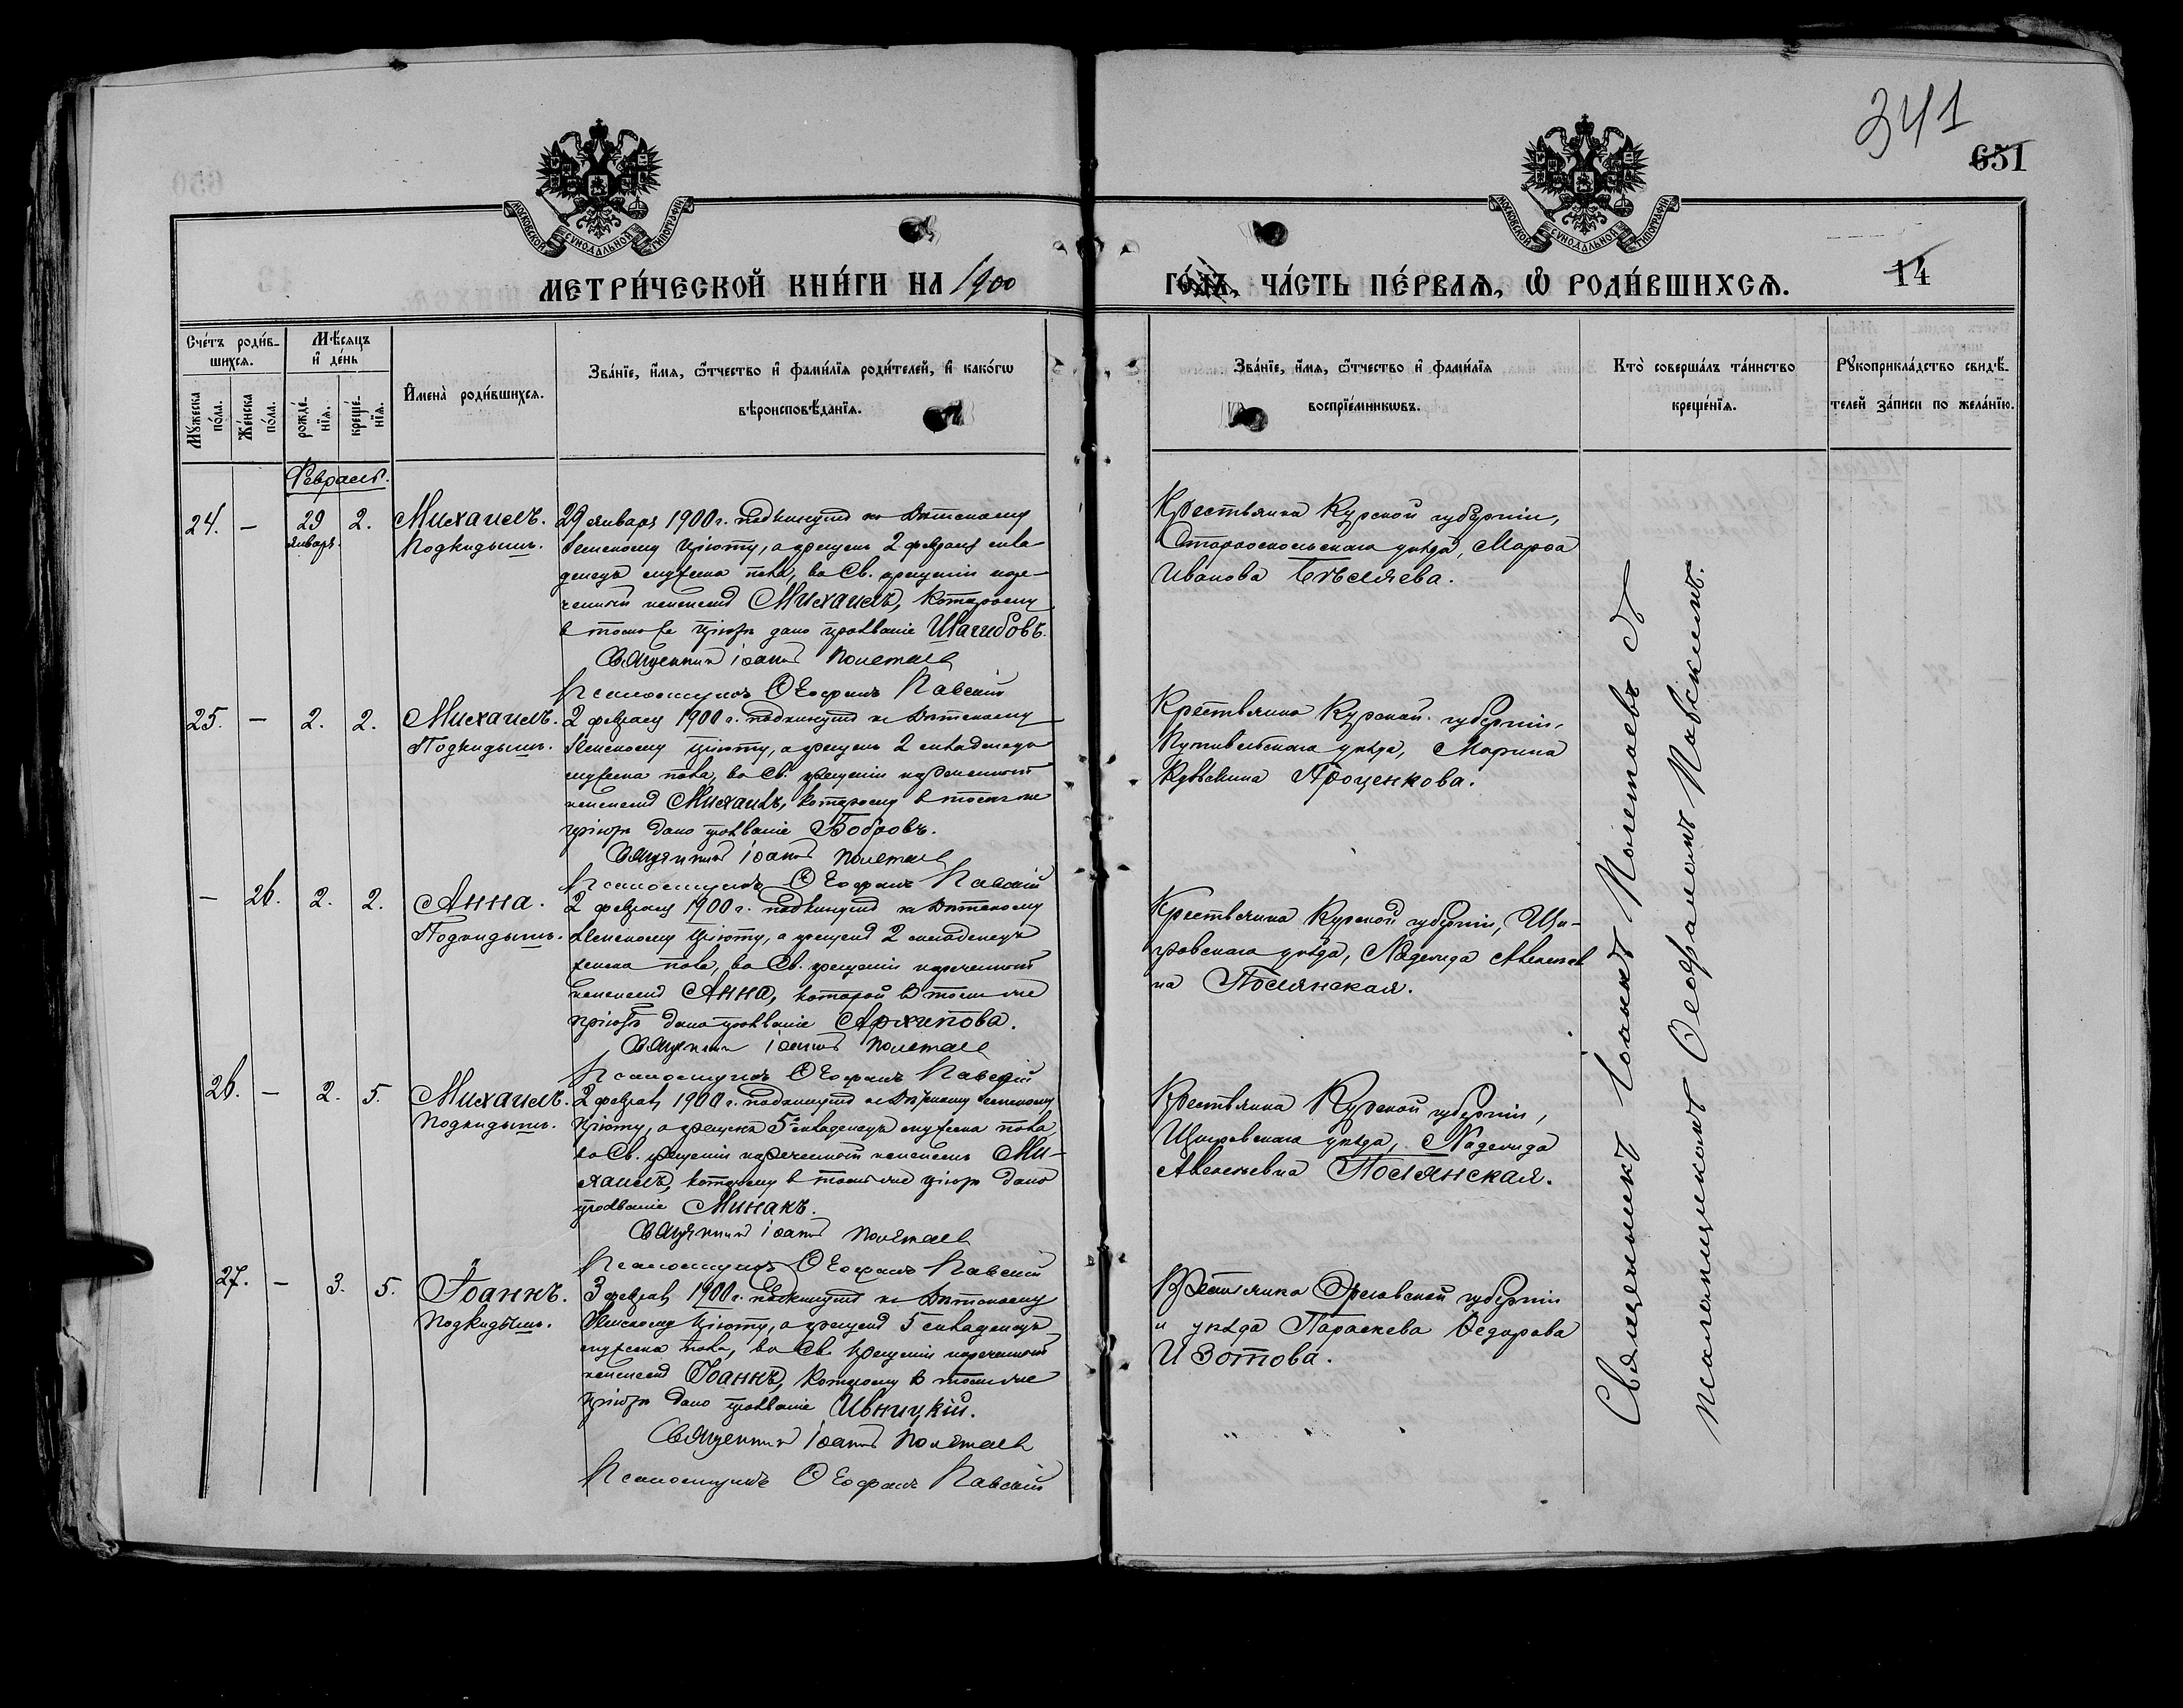 341
651
МОСКОВСКОЙ СѴНОДАЛЬНОЙ ТИПОГРАФІИ
МОСКОВСКОЙ СѴНОДАЛЬНОЙ ТИПОГРАФІИ
МЕТРИ́ЧЕСКОЙ КНИ́ГИ НА 1900
ГО́ДЪ, ЧА́СТЬ ПЕ́РВАѦ, Ѡ҆ РОДИ́ВШИХСѦ.
14
Сче́тъ роди́в-
шихсѧ.
Мѣ́сѧцъ
и҆ де́нь
Мꙋ́жеска
по́ла.
Же́нска
по́ла.
рожде́-
нїѧ.
креще́-
нїѧ.
И҆мена̀ роди́вшихсѧ.
Зва́нїе, и҆́мѧ, ѻ҆́тчество и҆ фами́лїѧ роди́телей, и҆ како́гѡ
вѣроисповѣ́данїѧ.
Зва́нїе, и҆́мѧ, ѻ҆́тчество и҆ фами́лїѧ
воспрїе́мникѡвъ.
Кто̀ соверша́лъ та́инство
креще́нїѧ.
Рꙋкоприкла́дство свидѣ́-
телей за́писи по жела́нїю.
Февраль.
24. — 29 января. 2. Михаилъ.
Подкидышъ.
29 января 1900 г. подкинутъ къ Дѣтскому
Земскому Пріюту, а крещенъ 2 февраля мла-
денецъ мужеска пола, во Св. крещеніи наре-
ченный именемъ Михаилъ, которому
в томъ же пріютѣ дано прозваніе Шагибовъ.
Священникъ Іоаннъ Полетаевъ
Псаломщикъ Ѳеофанъ Павскій
Крестьянка Курской губерніи,
Старооскольскаго уѣзда, Марѳа
Иванова Бѣляева.
25. — 2. 2. Михаилъ.
Подкидышъ.
2 февраля 1900 г. подкинутъ къ Дѣтскому
Земскому пріюту, а крещенъ 2 младенецъ
мужеска пола, во Св. крещеніи нареченный
именемъ Михаилъ, которому в томъ же
пріютѣ дано прозваніе Бобровъ.
Священникъ Іоаннъ Полетаевъ
Псаломщикъ Ѳеофанъ Павскій
Крестьянка Курской губерніи,
Путивльскаго уѣзда, Марина
Кузьмина Проценкова.
— 26. 2. 2. Анна.
Подкидышъ.
2 февраля 1900 г. подкинутъ къ Дѣтскому
Земскому Пріюту, а крещенъ 2 младенецъ
женска пола, во Св. крещеніи нареченный
именемъ Анна, которой в томъ же
пріютѣ дано прозваніе Архипова.
Священникъ Іоаннъ Полетаевъ
Псаломщикъ Ѳеофанъ Павскій
Крестьянка Курской губерніи, Щи-
гровскаго уѣзда, Надежда
на Полянская.
26. — 2. 5. Михаилъ.
Подкидышъ.
2 февраля 1900 г. подкинутъ къ Дѣтскому Земскому
Пріюту, а крещенъ 5 младенецъ мужеска пола,
во Св. крещеніи нареченный именемъ Ми-
хаилъ, которому в томъ же пріютѣ дано
прозваніе Минакъ.
Священникъ Іоаннъ Полетаевъ
Псаломщикъ Ѳеофанъ Павскій
Крестьянка Курской губерніи,
Щигровскаго уѣзда, Надежда
Полянская.
27. — 3. 5. Іоаннъ.
Подкидышъ.
3 февраля 1900 г. подкинутъ къ Дѣтскому
Земскому Пріюту, а крещенъ 5 младенецъ
мужеска пола, во Св. крещеніи нареченный
именемъ Іоаннъ, которому в томъ же
пріютѣ дано прозваніе Ивницкій.
Священникъ Іоаннъ Полетаевъ
Псаломщикъ Ѳеофанъ Павскій
Крестьянка Орловской губерніи
и уѣзда Параскева Ѳедорова
Изотова.
Священникъ Іоаннъ Полетаевъ съ
псаломщикомъ Ѳеофаномъ Павскимъ.